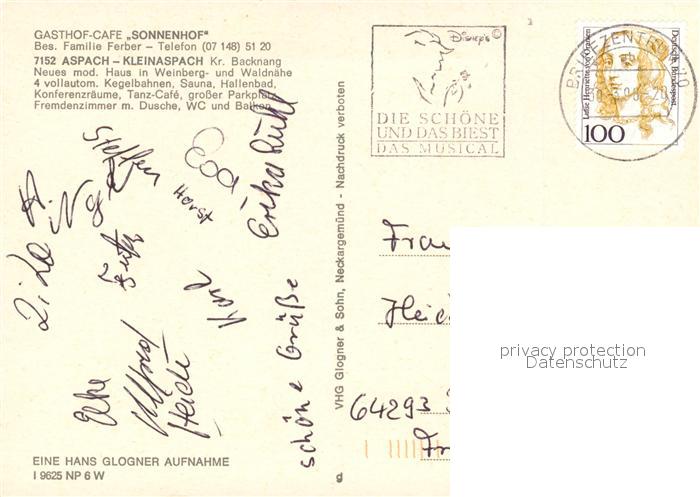 GASTHOF-CAFE „SONNENHOF"
Bes. Familie Ferber – Telefon (07 148) 51 20
7152 ASPACH – KLEINASPACH Kr. Backnang
Neues mod. Haus in Weinberg- und Waldnähe
4 vollautom. Kegelbahnen, Sauna, Hallenbad,
Konferenzräume, Tanz-Café, großer Parkplatz
Fremdenzimmer m. Dusche, WC und Balkon
Steffen
Horst
Erika Kuhl
Fritz
Karl
schöne Grüße
Elke
Alfred
Heidi
EINE HANS GLOGNER AUFNAHME
I 9625 NP 6 W
VHG Glogner & Sohn, Neckargemünd - Nachdruck verboten
g
Disney's ©
DIE SCHÖNE
UND DAS BIEST
DAS MUSICAL
BRIEFZENTRUM
Luise Henriette von Oranien
Deutsche Bundespost
100
Frau
Heid
64293
Fr
privacy protection
Datenschutz